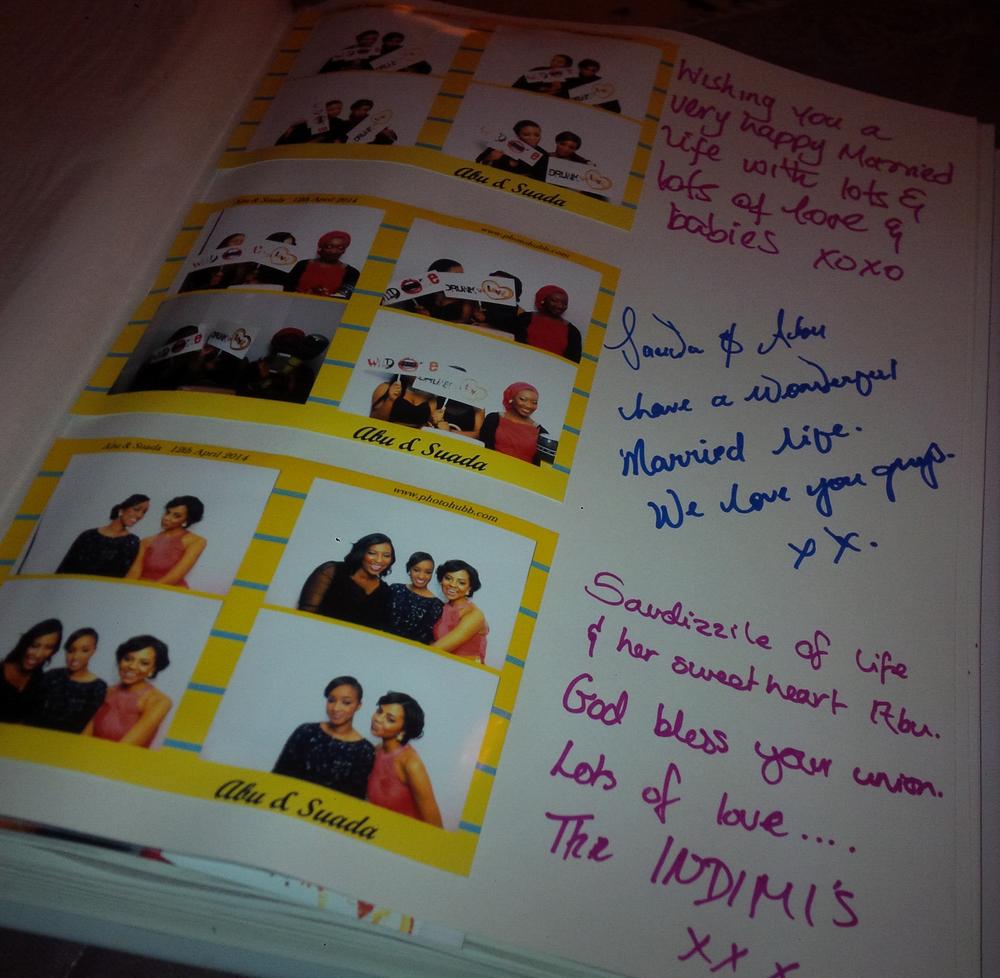 Abu & Suada
Wishing you a
very happy Married
life with lots &
lots of love &
babies xoxo
Abu & Suada 12th April 2014
www.photohubb.com
WILD
DRUNK
WILD
DRUNK
Abu & Suada
Sauda & Abu
have a wonderful
Married life.
We love you guys.
xx.
Abu & Suada 12th April 2014
www.photohubb.com
Abu & Suada
Saudizzile of life
& her sweet heart Abu.
God bless your union.
Lots of love....
The INDIMI'S
xxx